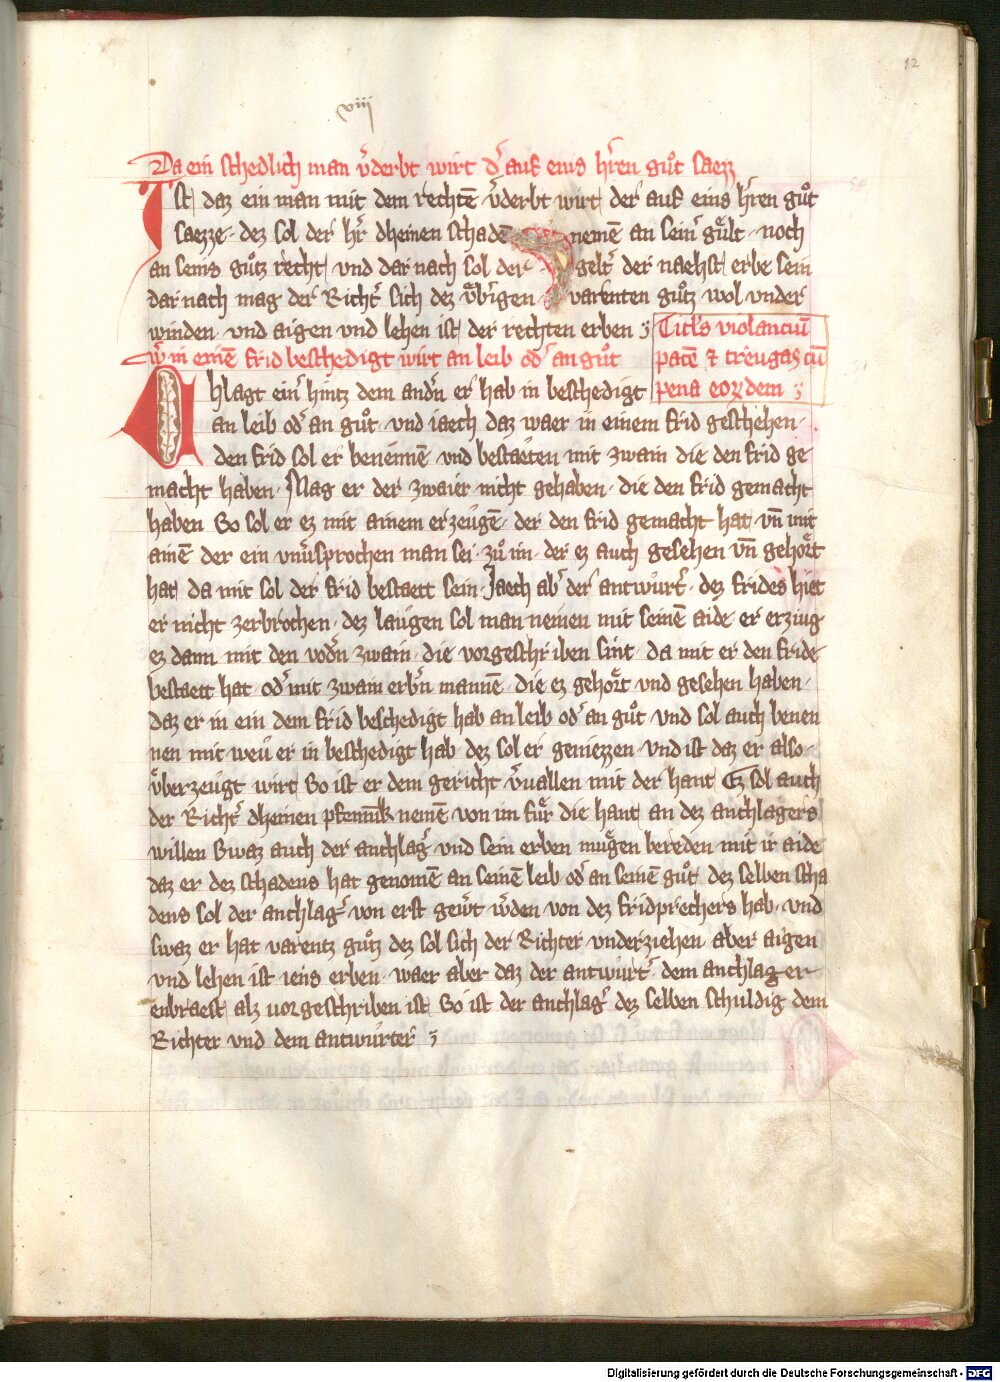 12
viii
Da ein schedlich man v̄derbt wirt d᷑ auf eins h᷑ren guͦt saezz
Ist daz ein man mit dem rechtē v̄derbt wirt der auf eins h᷑ren guͦt
saezze · dez sol der h᷑r dheinen schadē nemē an sein᷑ guͤlt · noch
an seins guͦtz recht · und dar nach sol der gelt᷑ der naehst erbe sein
dar nach mag der Richt᷑ sich dez uͤbrigen varenten guͦtz wol under
winden · und aigen und lehen ist der rechten erben ·
Titl᷑s violanciū
pacē ⁊ treugas cū
pena eorꝝdem
W᷑ in einē frid beschedigt wirt an leib od᷑ an guͦt
Chlagt ein᷑ hintz dem and᷑n er hab in beschedigt
an leib od᷑ an guͦt · und iaech daz waer in einem frid geschehen ·
den frid sol er benennē · und bestaeten mit zwain die den frid ge
macht haben · Mag er der zwaier nicht gehaben · die den frid gemacht
haben So sol er ez mit ainem erzeugē · der den frid gemacht hat · vn̄ mit
ainē der ein unv᷑sprochen man sei · zuͦ im · der ez auch gesehen vn̄ gehoͤrt
hat da mit sol der frid bestaett sein · Jaech ab᷑ der antwuͤrt᷑ · dez frides hiet
er nicht zerbrochen · dez laugen sol man nemen mit seinē aide · er erziug
ez dann mit den vod᷑n zwain · die vorgeschriben sint · da mit er den fride
bestaett hat · od᷑ mit zwain erb᷑n mannē · die ez gehoͤrt und gesehen haben ·
daz er in ein dem frid beschedigt hab an leib od᷑ an guͦt · und sol auch benen
nen mit weu er in beschedigt hab dez sol er geniezzen · und ist daz er also ·
uͤberzeugt wirt So ist er dem gericht v᷑uallen mit der hant Ez sol auch
der Richt᷑ dheinen pfennīk nemē · von im fuͤr die hant an dez anchlagers
willen Swaz auch der anchlag᷑ · und sein erben muͤgen bereden mit ir aide
daz er dez schadens hat genomē an seinē leib · od᷑ an seinē guͦt dez selben scha
dens sol der anchlag᷑ von erst gew᷑t w᷑den von dez fridprechers hab · und
swaz er hat varentz guͦtz dez sol sich der Richter underziehen aber aigen
und lehen ist iens erben · waer aber daz der antwuͤrt᷑ dem anchlager
enbraest alz uorgeschriben ist So ist der anchlag᷑ dez selben schuldig dem
Richter und dem antwuͤrter
Digitalisierung gefördert durch die Deutsche Forschungsgemeinschaft - DFG